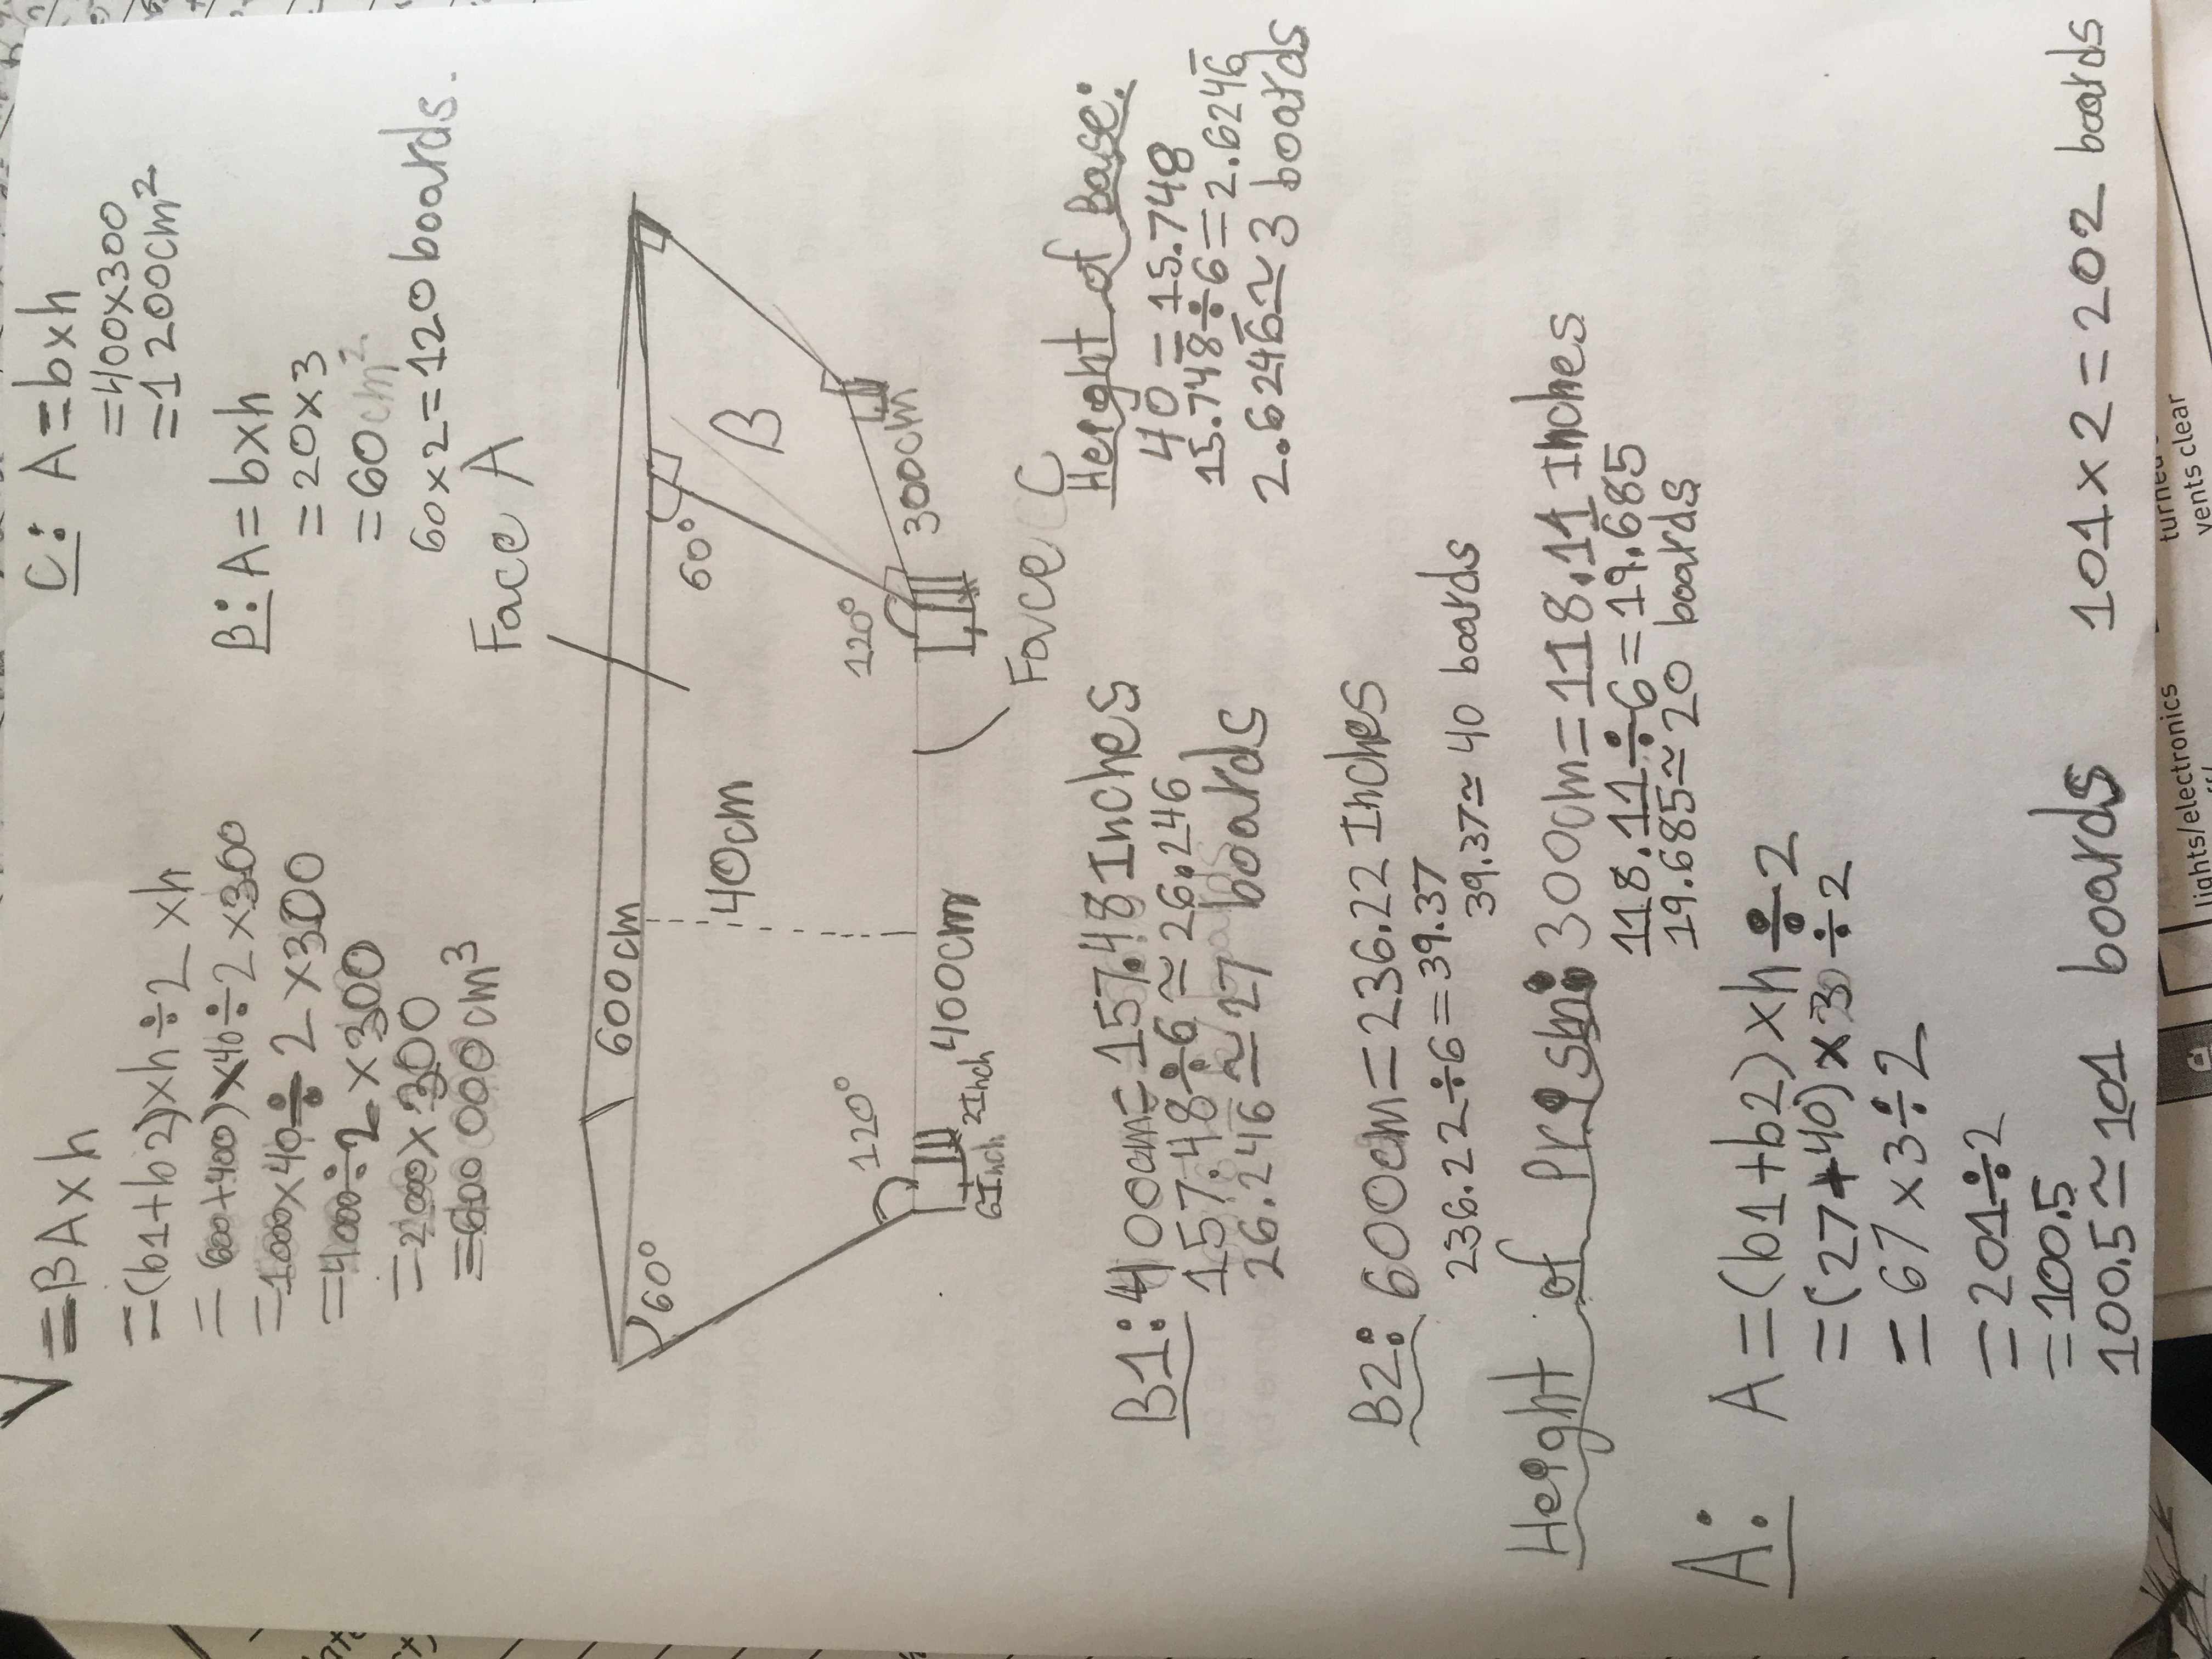 V=BAxh
=(b1+b2)xh÷2 xh
= 600+400)x40÷2x300
=1000x40÷2x300
=4000÷2x300
=2000x300
=600 000cm3
C: A=bxh
=400x300
=1200cm2
B: A=bxh
=20x3
=60cm2
60x2=120boards.
Face A
600cm
60°
60°
B
40cm
120°
120°
300cm
6Inch 2Inch 400cm
Face C
B1: 400cm=157.48Inches
157.48÷6≃26.246
26.246≃27 boards
Height of Base:
40=15.748
15.748÷6=2.6246
2.6246≃3 boards
B2: 600cm=236.22Inches
236.22÷6=39.37
39.37≃40 boards
Height of Prism: 300cm=118.11 Inches
118.11÷6=19.685
19.685≃20 boards
A: A=(b1+b2)xh÷2
=(27+40)x3÷2
=67x3÷2
=201÷2
=100.5
100.5≃101 boards 101x2=202 boards
lights/electronics turned
vents clear